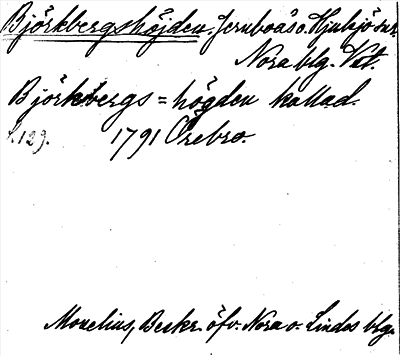 Björkbergshöjden. Jernboås o. Hjulsjö snr.
Nora blg. Vstl.
Björkbergs=högden kallad.
s. 129. 1791 Örebro.
Morelius, Beskr. öfv. Nora o. Lindes blg.